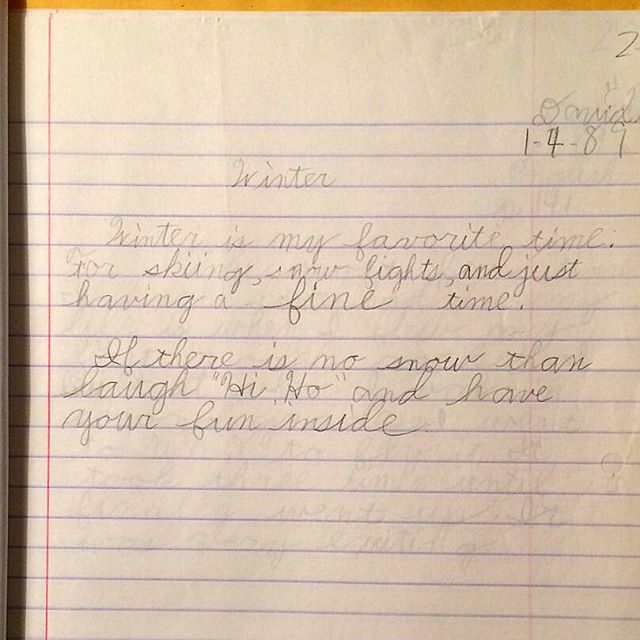 2
David
1-4-87
Winter
Winter is my favorite time.
For skiing, snow fights, and just
having a fine time.
If there is no snow than
laugh "Hi Ho" and have
your fun inside.